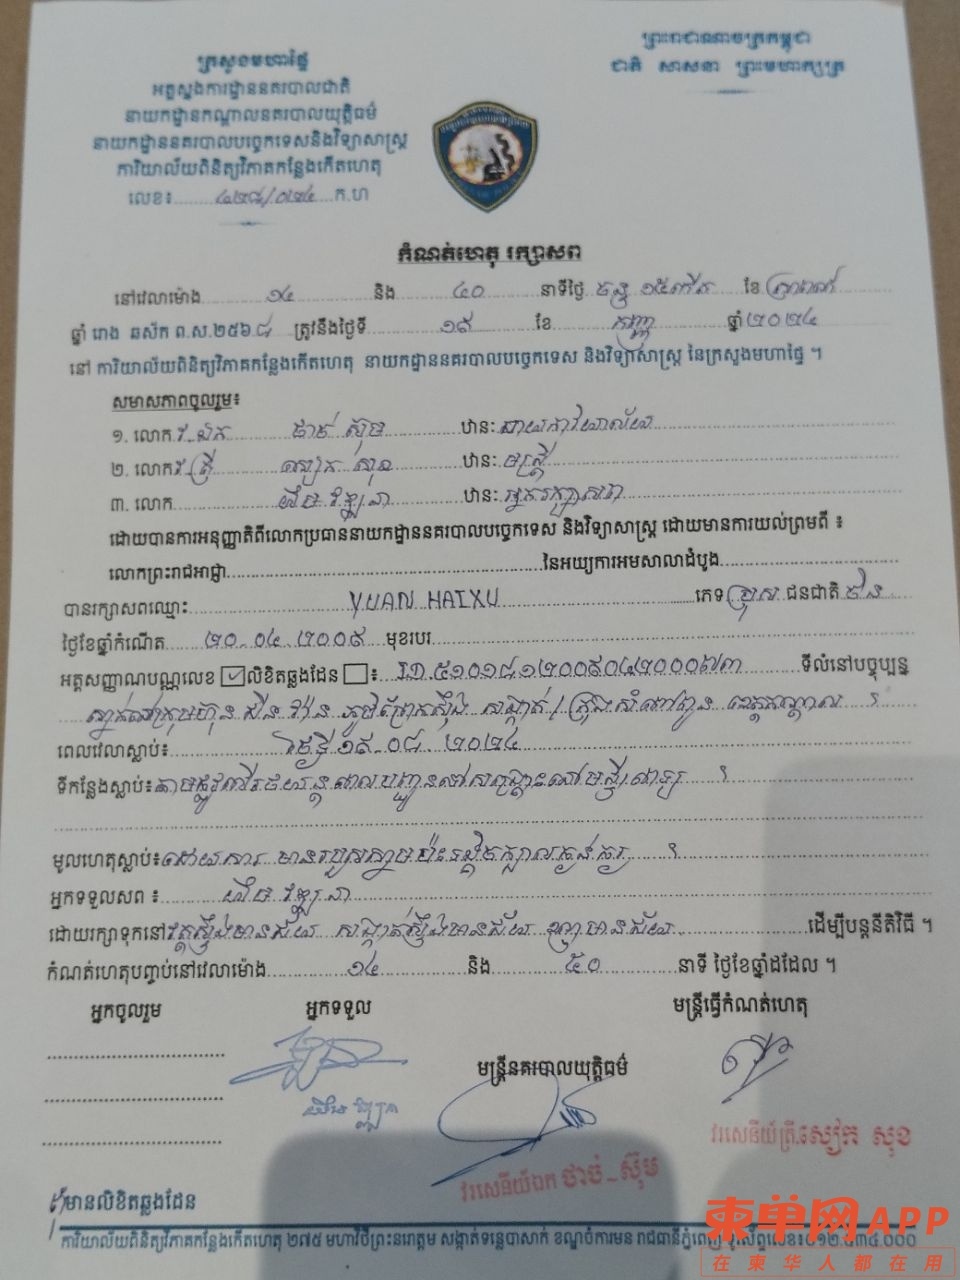 ព្រះរាជាណាចក្រកម្ពុជា
ជាតិ សាសនា ព្រះមហាក្សត្រ
ក្រសួងមហាផ្ទៃ
អគ្គស្នងការដ្ឋាននគរបាលជាតិ
នាយកដ្ឋានកណ្តាលនគរបាលយុត្តិធម៌
នាយកដ្ឋាននគរបាលបច្ចេកទេសនិងវិទ្យាសាស្ត្រ
ការិយាល័យពិនិត្យវិភាគកន្លែងកើតហេតុ
លេខ៖ ៤២៨/០២៤ ក.ហ
កំណត់ហេតុ រក្សាសព
នៅវេលាម៉ោង ១៤ និង ៤០ នាទីថ្ងៃ ចន្ទ ១៥កើត ខែ ស្រាពណ៍
ឆ្នាំ រោង ឆស័ក ព.ស.២៥៦៨ ត្រូវនឹងថ្ងៃទី ១៩ ខែ កញ្ញា ឆ្នាំ២០២៤
នៅ ការិយាល័យពិនិត្យវិភាគកន្លែងកើតហេតុ នាយកដ្ឋាននគរបាលបច្ចេកទេស និងវិទ្យាសាស្ត្រ នៃក្រសួងមហាផ្ទៃ ។
សមាសភាពចូលរួម៖
១. លោក វ.ឯក ថាច់ ស៊ុម ឋានៈ នាយការិយាល័យ
២. លោក វ.ត្រី សៀក សុខ ឋានៈ មន្ត្រី
៣. លោក ឋានៈ អ្នករក្សាសព
ដោយបានការអនុញ្ញាតិពីលោកប្រធាននាយកដ្ឋាននគរបាលបច្ចេកទេស និងវិទ្យាសាស្ត្រ ដោយមានការយល់ព្រមពី ៖
លោកព្រះរាជអាជ្ញា នៃអយ្យការអមសាលាដំបូង
បានរក្សាសពឈ្មោះ YUAN HAIXU ភេទ ប្រុស ជនជាតិ ចិន
ថ្ងៃខែឆ្នាំកំណើត ២០.០៤.២០០៩ មុខរបរ
អត្តសញ្ញាណបណ្ណលេខ លិខិតឆ្លងដែន ៖ I.D.៥១០១៨១២០០៩០៤២០០០៧៣ ទីលំនៅបច្ចុប្បន្ន
ស្នាក់នៅក្រុមហ៊ុន ភូមិព្រែកស្ទឹង សង្កាត់/ក្រុងសំពៅពូន ខេត្តកណ្តាល ។
ពេលវេលាស្លាប់៖ ថ្ងៃទី ១៩.០៨.២០២៤
ទីកន្លែងស្លាប់៖ តាមផ្លូវលើរថយន្តពេលបញ្ជូនទៅសង្គ្រោះនៅមន្ទីរពេទ្យ ។
មូលហេតុស្លាប់៖ ដោយសារ មានរបួសស្នាមប៉ះទង្គិចក្បាលធ្ងន់ធ្ងរ ។
អ្នកទទួលសព ៖
ដោយរក្សាទុកនៅ វត្តស្ទឹងមានជ័យ សង្កាត់ស្ទឹងមានជ័យ ខណ្ឌមានជ័យ ដើម្បីបន្តនីតិវិធី ។
កំណត់ហេតុបញ្ចប់នៅវេលាម៉ោង ១៤ និង ៥០ នាទី ថ្ងៃខែឆ្នាំដដែល ។
អ្នកចូលរួម អ្នកទទួល មន្ត្រីធ្វើកំណត់ហេតុ
មន្ត្រីនគរបាលយុត្តិធម៌
វរសេនីយ៍ត្រី សៀក សុខ
វរសេនីយ៍ឯក ថាច់ ស៊ុម
មានលិខិតឆ្លងដែន
ការិយាល័យពិនិត្យវិភាគកន្លែងកើតហេតុ ២៧៥ មហាវិថីព្រះនរោត្តម សង្កាត់ទន្លេបាសាក់ ខណ្ឌចំការមន រាជធានីភ្នំពេញ
柬单网APP
在柬华人都在用